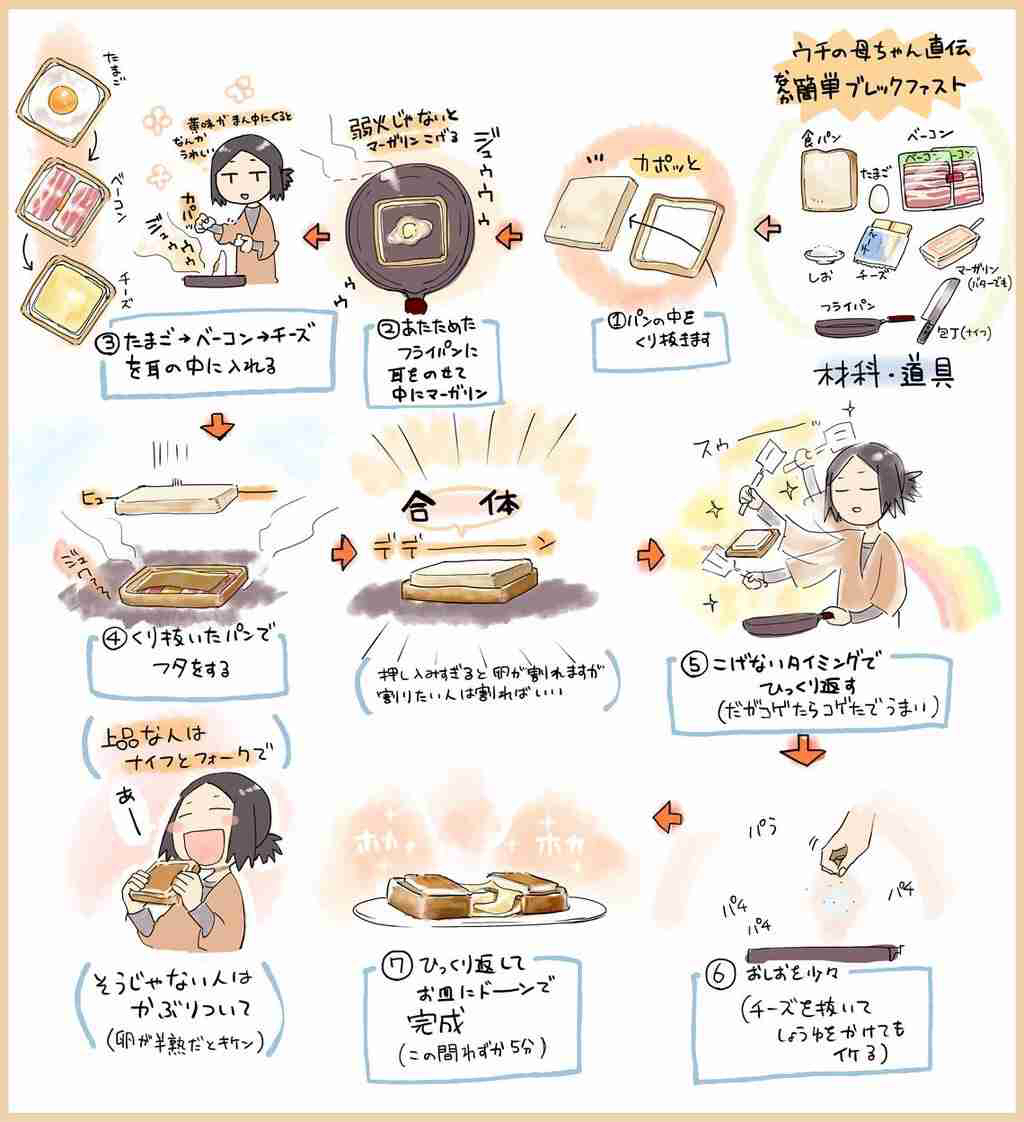 ウチの母ちゃん直伝
なんか簡単ブレックファスト
食パン
ベーコン
ベーコン
ベーコン
たまご
しお
チーズ
チーズ
マーガリン
(バターでも)
フライパン
包丁(ナイフ)
材料・道具
カポッと
①パンの中を
くり抜きます
弱火じゃないと
マーガリンこげる
ジュウゥゥゥゥ
②あたためた
フライパンに
耳をのせて
中にマーガリン
黄味がまん中にくると
なんか
うれしい
カパッ
ジュウゥゥ
たまご
ベーコン
チーズ
③たまご→ベーコン→チーズ
を耳の中に入れる
ヒュー
④くり抜いたパンで
フタをする
合体
デデーーン
(押し込みすぎると卵が割れますが
割りたい人は割ればいい)
スゥーッ
⑤こげないタイミングで
ひっくり返す
(だがコゲたらコゲたでうまい)
パラ
パチ
パチ
パチ
⑥おしおを少々
(チーズを抜いて
しょうゆをかけても
イケる)
ホカ
ホカ
⑦ひっくり返して
お皿にドーンで
完成
(この間わずか5分)
(上品な人は
ナイフとフォークで)
あー
(そうじゃない人は
かぶりついて
(卵が半熟だとキケン))